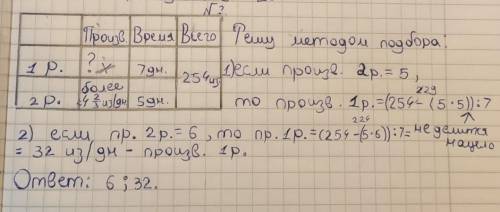 √?
Произв. Время Всего
1 р. ? x 7дн. 254из
2 р. более 4 2/3 из/дн 5дн.
Решу методом подбора:
1) если произв. 2р. = 5,
229
то произв. 1р. = (254 - (5·5)) : 7
не делится нацело
2) если пр. 2р. = 6, то пр. 1р. = (254 - (6·5)) : 7 =
224
= 32 из/дн - произв. 1р.
Ответ: 6 ; 32.